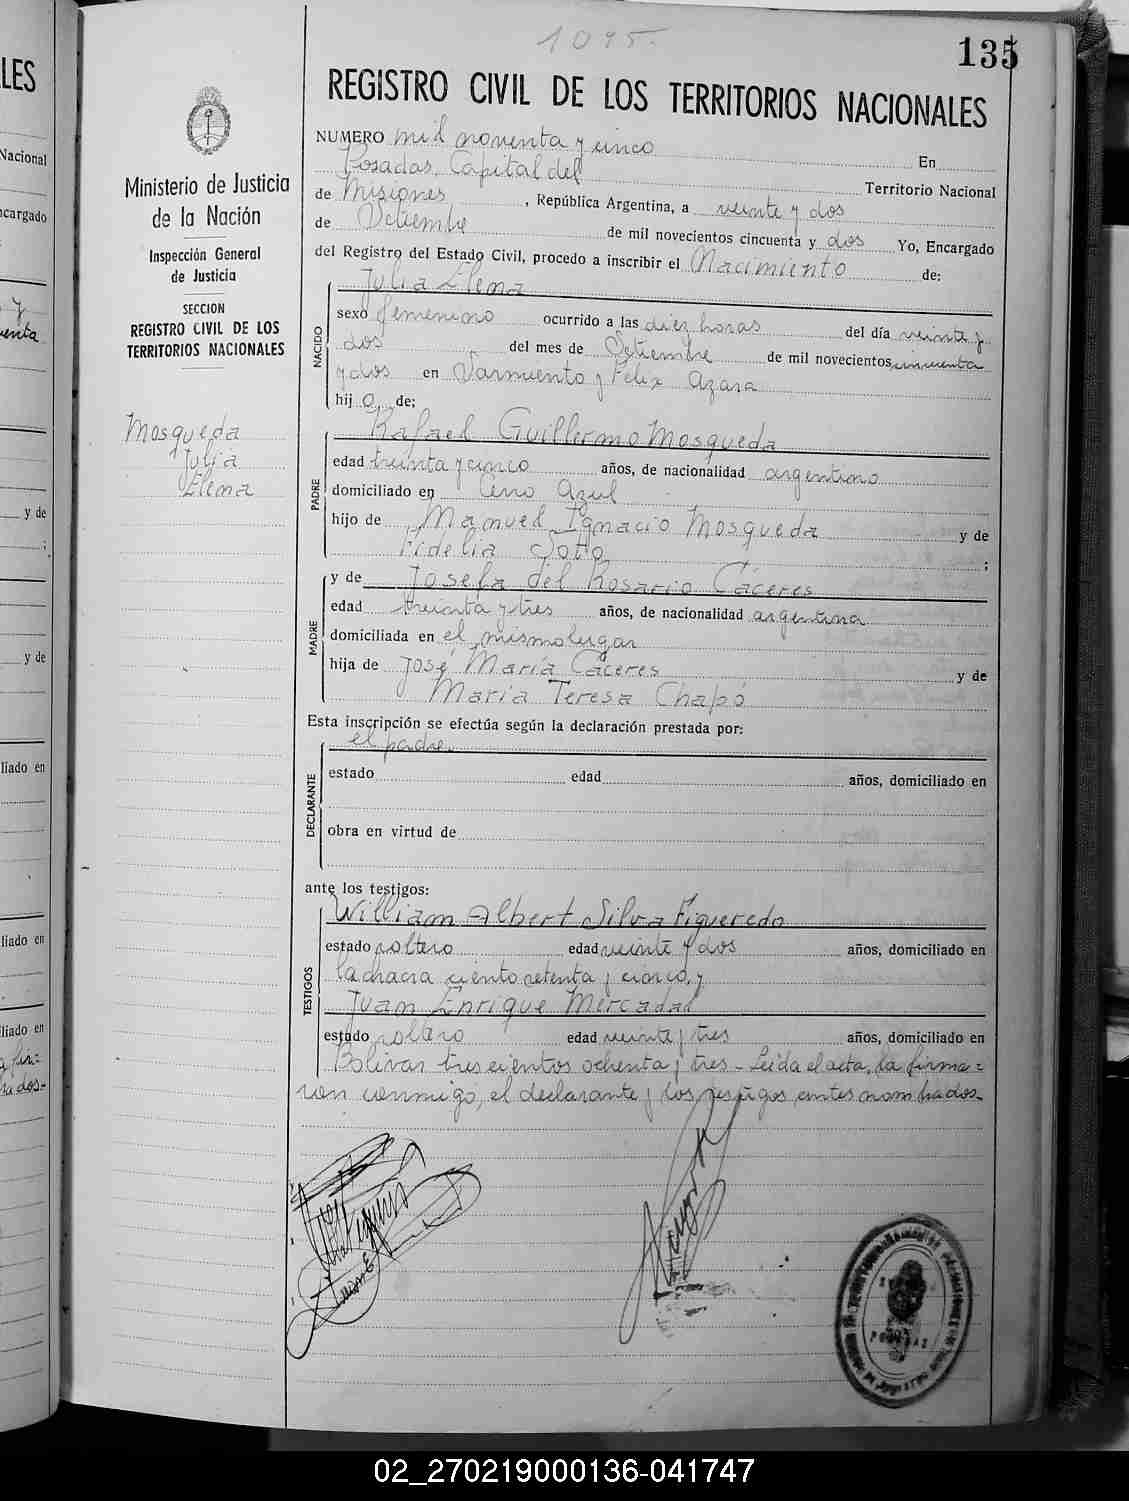 1095.
135
REGISTRO CIVIL DE LOS TERRITORIOS NACIONALES
LES
Nacional
ncargado
y
uenta
y de
;
y de
liado en
liado en
liado en
Ministerio de Justicia
de la Nación
Inspección General
de Justicia
SECCION
REGISTRO CIVIL DE LOS
TERRITORIOS NACIONALES
Mosqueda
Julia
Elena
NUMERO mil noventa y cinco En
Posadas, Capital del Territorio Nacional
de Misiones, República Argentina, a veinte y dos
de Setiembre de mil novecientos cincuenta y dos Yo, Encargado
del Registro del Estado Civil, procedo a inscribir el Nacimiento de:
Julia Elena
NACIDO
sexo femenino ocurrido a las diez horas del día veinte y
dos del mes de Setiembre de mil novecientos cincuenta
y dos en Sarmiento y Felix Azara
hij a de;
Rafael Guillermo Mosqueda
PADRE
edad treinta y cinco años, de nacionalidad argentino
domiciliado en Cerro Azul
hijo de Manuel Ignacio Mosqueda y de
Fidelia Soto ;
y de Josefa del Rosario Cáceres
MADRE
edad treinta y tres años, de nacionalidad argentina
domiciliada en el mismo lugar
hija de José María Cáceres y de
María Teresa Chapó
Esta inscripción se efectúa según la declaración prestada por:
el padre.
DECLARANTE
estado edad años, domiciliado en
obra en virtud de
ante los testigos:
William Albert Silva Figueredo
TESTIGOS
estado soltero edad veinte y dos años, domiciliado en
la chacra ciento setenta y cinco, y
Juan Enrique Mercadal
estado soltero edad veinte y tres años, domiciliado en
Bolivar trescientos ochenta y tres - Leida el acta, la firma=
ron conmigo, el declarante y los testigos antes nombrados-
POSADAS
02_270219000136-041747